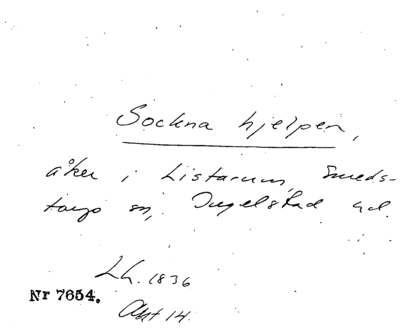 Sockna hjelpen,
åker i Listarum, Smeds-
torps sn, Ingelstad hd.
Lh. 1836
Nr 7654.
Akt 14